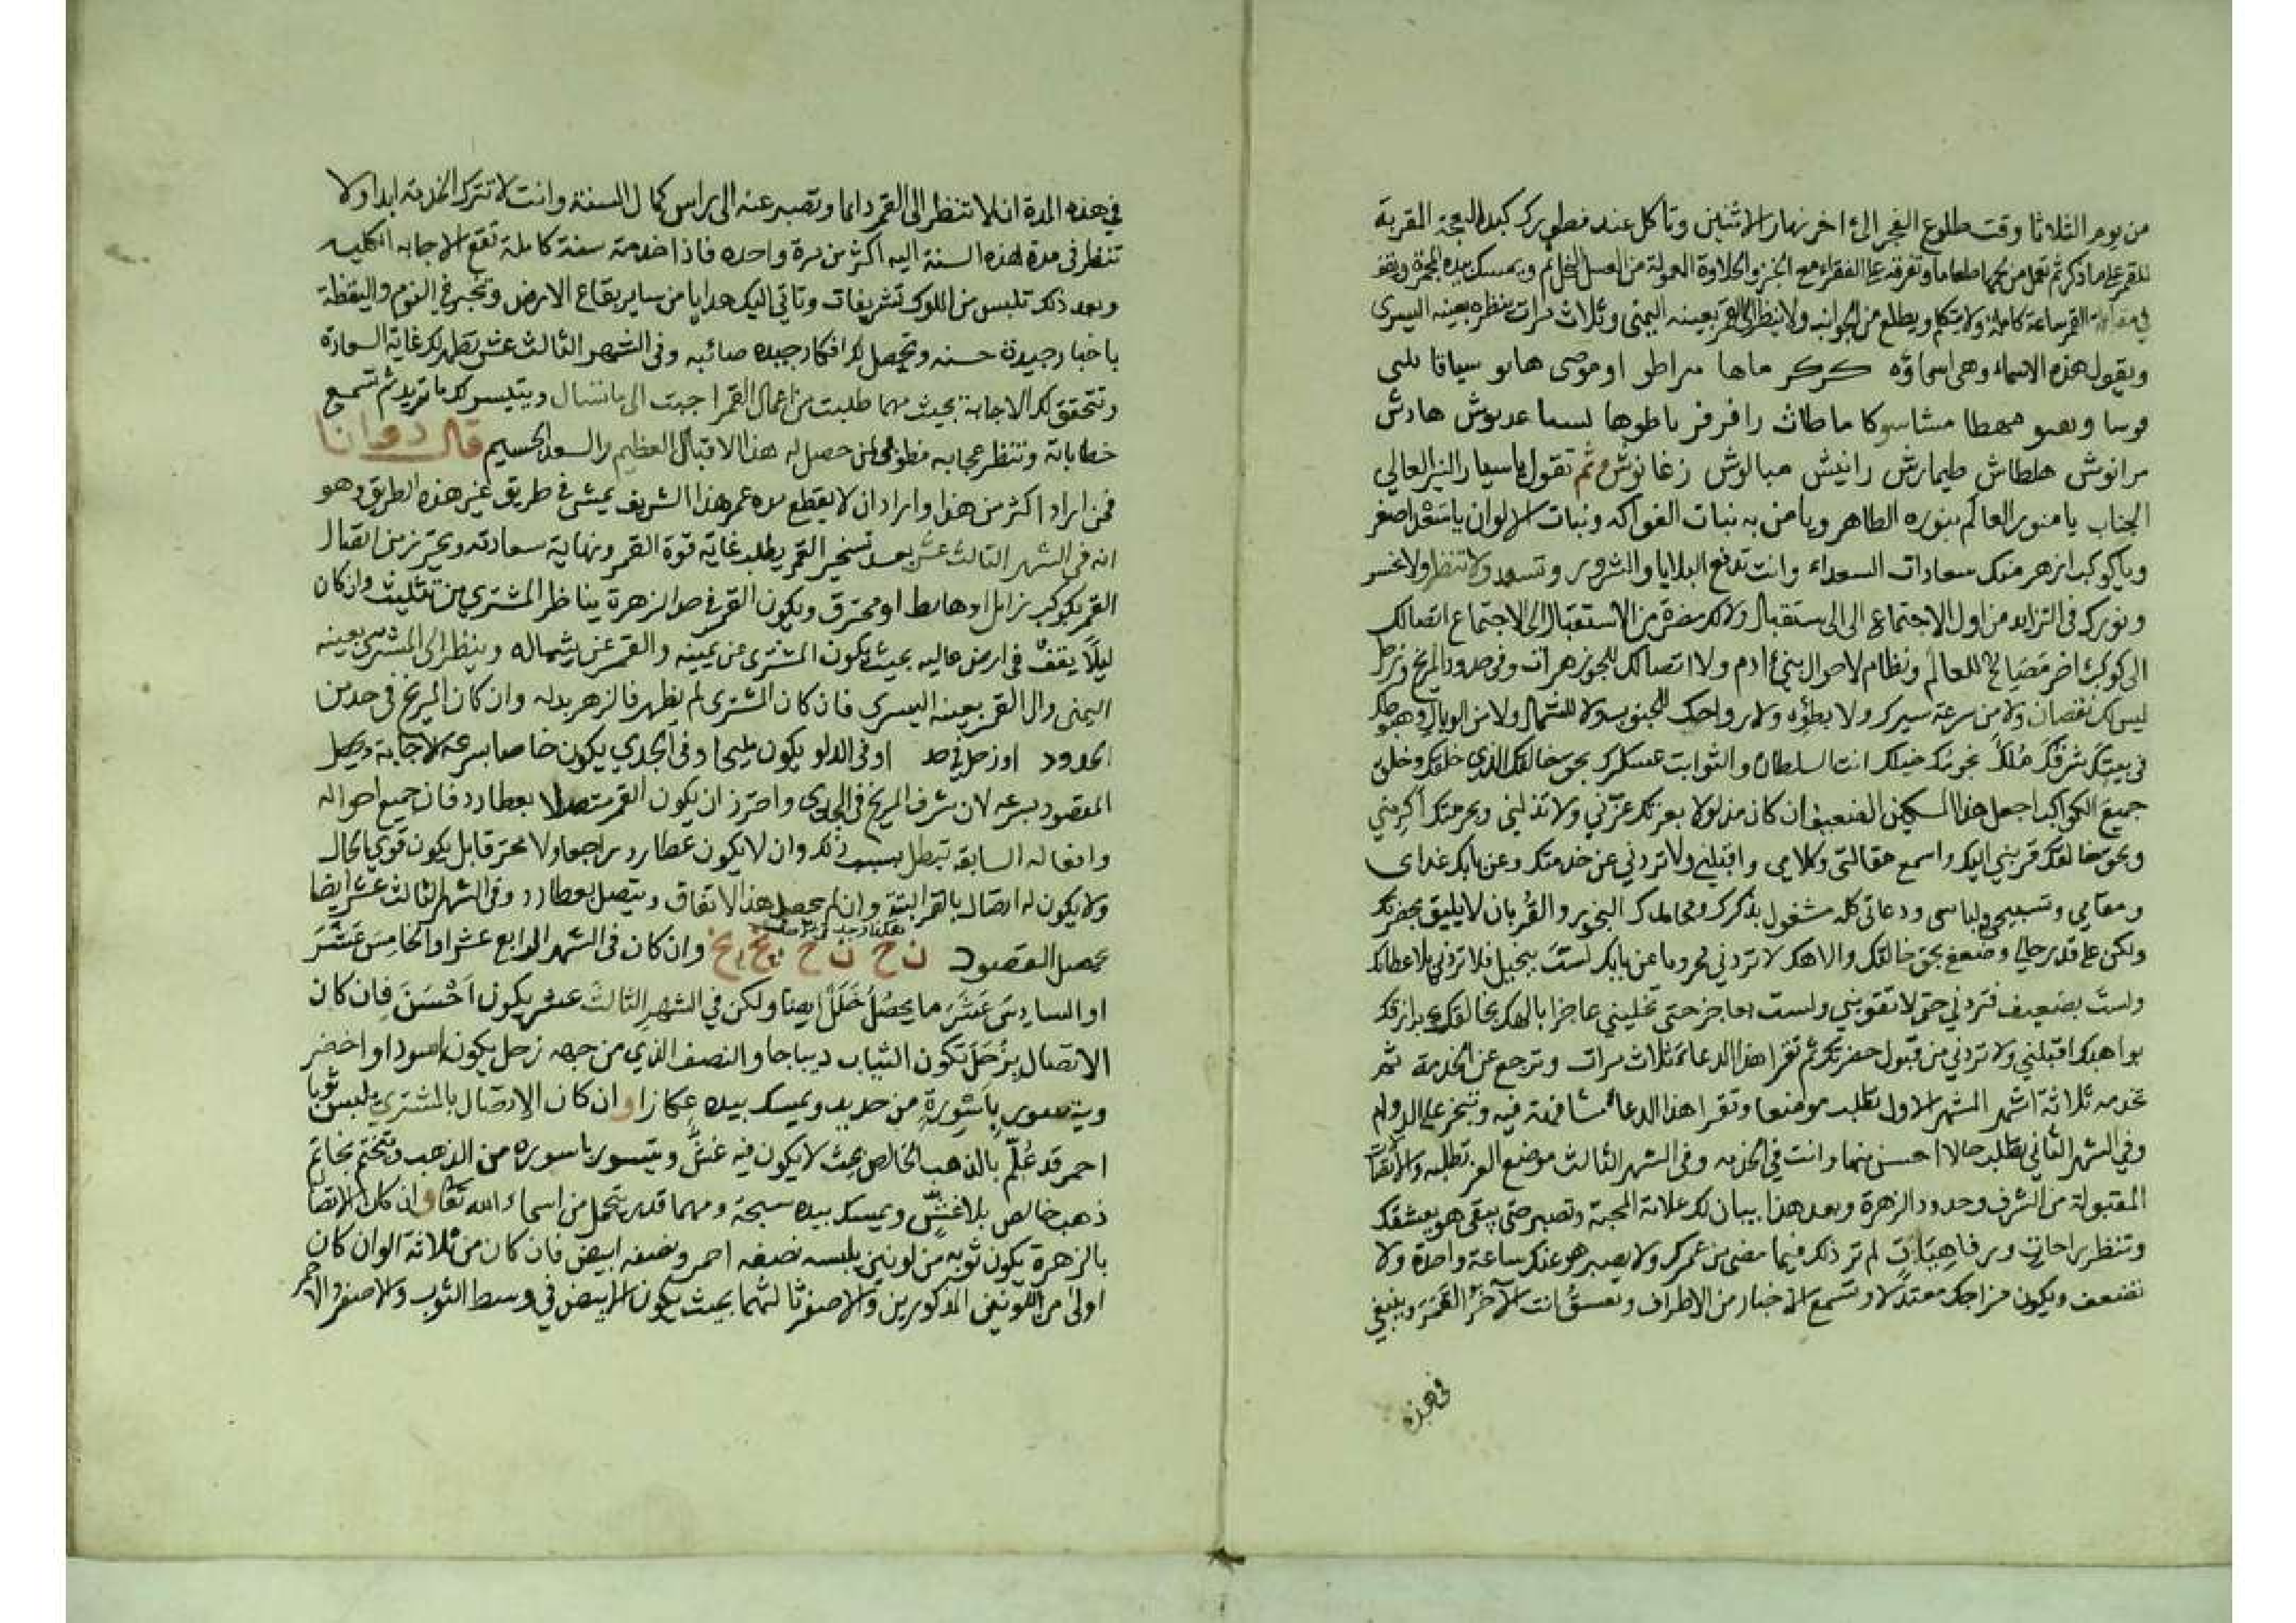 من يوم الثلاثا وقت طلوع الفجر الى اخر نهار الاثنين وتاكل عند فطورك كبد البعجة المقربة
للقمر على ما ذكر ثم تعمل من لحمها طعاما وتفرقه على الفقراء مع الخبز والحلاوة المعمولة من العسل النحل ثم ويمسك بيده المجمرة ويقف
في مقابلة القمر ساعة كاملة ولا يتكلم ويطلع من الجوانب ولا ينظر الى القمر بعينه اليمنى وثلاث مرات ينظره بعينه اليسرى
ويقول هذه الاسماء وهى اسماؤه كركر ماها سراطو اوموصى هابو سياقا بلسى
مرانوش هلطاش طيمارش رانيش مبالوش زغانوش ثم تقول يا سيار النير العالي
الجناب يا منور العالم بنوره الطاهر ويا من به نبات الفواكه ونبات الالوان يا سعد اصغر
ويا كوكب ازهر منك سعادات السعداء وانت تدفع البلايا والشرور وتسعد ولا تنظر ولا نحس
ونورك فى التزايد من اول الاجتماع الى الى ستقبال ولا لك مضرة من الاستقبال الى الاجتماع اتصالك
الى كوكب اخر مصالح للعالم ونظام لاحوال بنى ادم ولا اتصالك للجوزهرات وفى حدود المريخ وزحل
ليس لك نقصان ولا من سرعة سيرك ولا بطؤه ولا رواحك للجنوب ولا للشمال ولا من الوبال وهبوطك
فى بيتك شرفك انت السلطان والثوابت عسكرك بحق خالقك الذى خلقك وخلق
جميع الكواكب اجعل هذا المسكين الضعيف ان كان مذلولا بعزتك عزنى ولا تذلينى وبحرمتك اكرمنى
وبحق خالقك قربنى اليك واسمع مقالتى وكلامى واقبلنى ولا تردنى عن خدمتك وعن بابك غداى
ومقامى وتسبيحى ولباسى ودعائى كله مشغول بذكرك ومحامدك البخور والقربان لا يليق بحضرتك
ولكن على قدر حالى وضعفى بحق خالقك والاهك لا تردنى محروما عن بابك لست ببخيل فلا تردنى بلا عطائك
ولست بضعيف فتردنى حتى لا تقوينى ولست بعاجز حتى تخلينى عاجزا بالهك بخالقك برازقك
بواهبك اقبلنى ولا تردنى من قبول حضرتك ثم تقرا هذا الدعا ثلاث مرات وترجع عن الخدمة ثم
تخدمه ثلاثة اشهر الشهر الاول تطلب موضعا وتقرا هذا الدعا مشافهة فيه وتبخر على الدوام
وفى الشهر الثانى تطلب حالا احسن منها وانت فى الخدمه وفى الشهر الثالث موضع العز تطلبه والاتصالات
المقبولة من الشرف وحدود الزهرة وبعد هذا يبان لك علامة المحبة وتصير حتى يبقى هو يعشقك
وتنظر راحات ورفاهيات لم تر ذلك فيما مضى من عمرك ولا يصبر هو عنك ساعة واحدة ولا
تضعف ويكون مزاجك معتدلا وتسمع الاخبار من الاطراف وتعشق انت الآخر القمر وينبغى
فى هذه
في هذه المدة ان لا تنظر الى القمر دائما وتصبر عنه الى راس كمال السنة وانت لا تترك الخدمة ابدا ولا
تنظر فى مدة هذه السنة اليه اكثر من مرة واحده فاذا خدمته سنة كاملة تقع الاجابه الكليه
وبعد ذلك تلبس من الملوك تشريفات وتاتى اليك هدايا من ساير بقاع الارض وتخبر فى النوم واليقظة
باخبار جيدة حسنه وتحصل لك افكار جيده صائبه وفى الشهر الثالث عشر يظهر لك غاية السعادة
وتتحقق لك الاجابة بحيث مهما طلبت من اعمال القمر اجبت الى ما تسال ويتيسر لك ما تريد ثم تسمع
خطاباته وتنظر عجايبه فطوبى لمن حصل له هذا الاقبال العظيم والسعد الجسيم قال دموانا
فمن اراد اكثر من هذا واراد ان لا يقطع مده عمره هذا الشريف يمشى فى طريق غير هذه الطريق وهو
انه فى الشهر الثالث عشر بعد تسخير القمر يطلب غاية قوة القمر ونهاية سعادته ويحترز من اتصال
القمر بكوكب زايل او هابط او محترق ويكون القمر فى حد الزهرة يناظر المشترى من تثليث وان كان
ليلا يقف فى ارض عاليه بحيث يكون المشترى عن يمينه والقمر عن شماله وينظر الى المشترى بعينه
اليمنى والى القمر بعينه اليسرى فان كان المشترى لم يظهر فالزهر بدله وان كان المريخ فى حد من
الحدود او زحل فى حد او فى الدلو يكون مليحا وفى الجدي يكون خاصا بسرعه الاجابة ويحصل
المقصود بسرعه لان شرف المريخ فى الجدى واحترز ان يكون القمر متصلا بعطارد فان جميع احواله
وافعاله السابقه تبطل بسبب ذلك وان لا يكون عطارد راجعا ولا محترقا بل يكون قوى الحال
ولا يكون له اتصال بالقمر البتة وان لم يحصل هذا الاتفاق ويتصل بعطارد وفى الشهر الثالث عشر ايضا
يحصل المقصود ن ح ن ح يخ يخ وان كان فى الشهر الرابع عشر او الخامس عشر
او السادس عشر ما يحصل خلل ايضا ولكن في الشهر الثالث عشر يكون احسن فان كان
الاتصال بزحل تكون الثياب ديباجا والنصف الذي من جهه زحل يكون اسود او اخضر
ويتسور باسورة من حديد ويمسك بيده عكازا وان كان الاتصال بالمشتري يلبس ثوبا
احمر قد علم بالذهب الخالص بحيث لا يكون فيه غش ويتسور باسوره من الذهب ويتختم بخاتم
ذهب خالص بلا غش ويمسك بيده سبحة ومهما قدر يتحمل من اسماء الله تعالى وان كان الاتصال
بالزهرة يكون ثوبه من لونين يلبسه نصفه احمر ونصفه ابيض فان كان من ثلاثة الوان كان
اولى من اللونين المذكورين والاصفر ثالثهما بحيث يكون الابيض في وسط الثوب والاصفر والاحمر